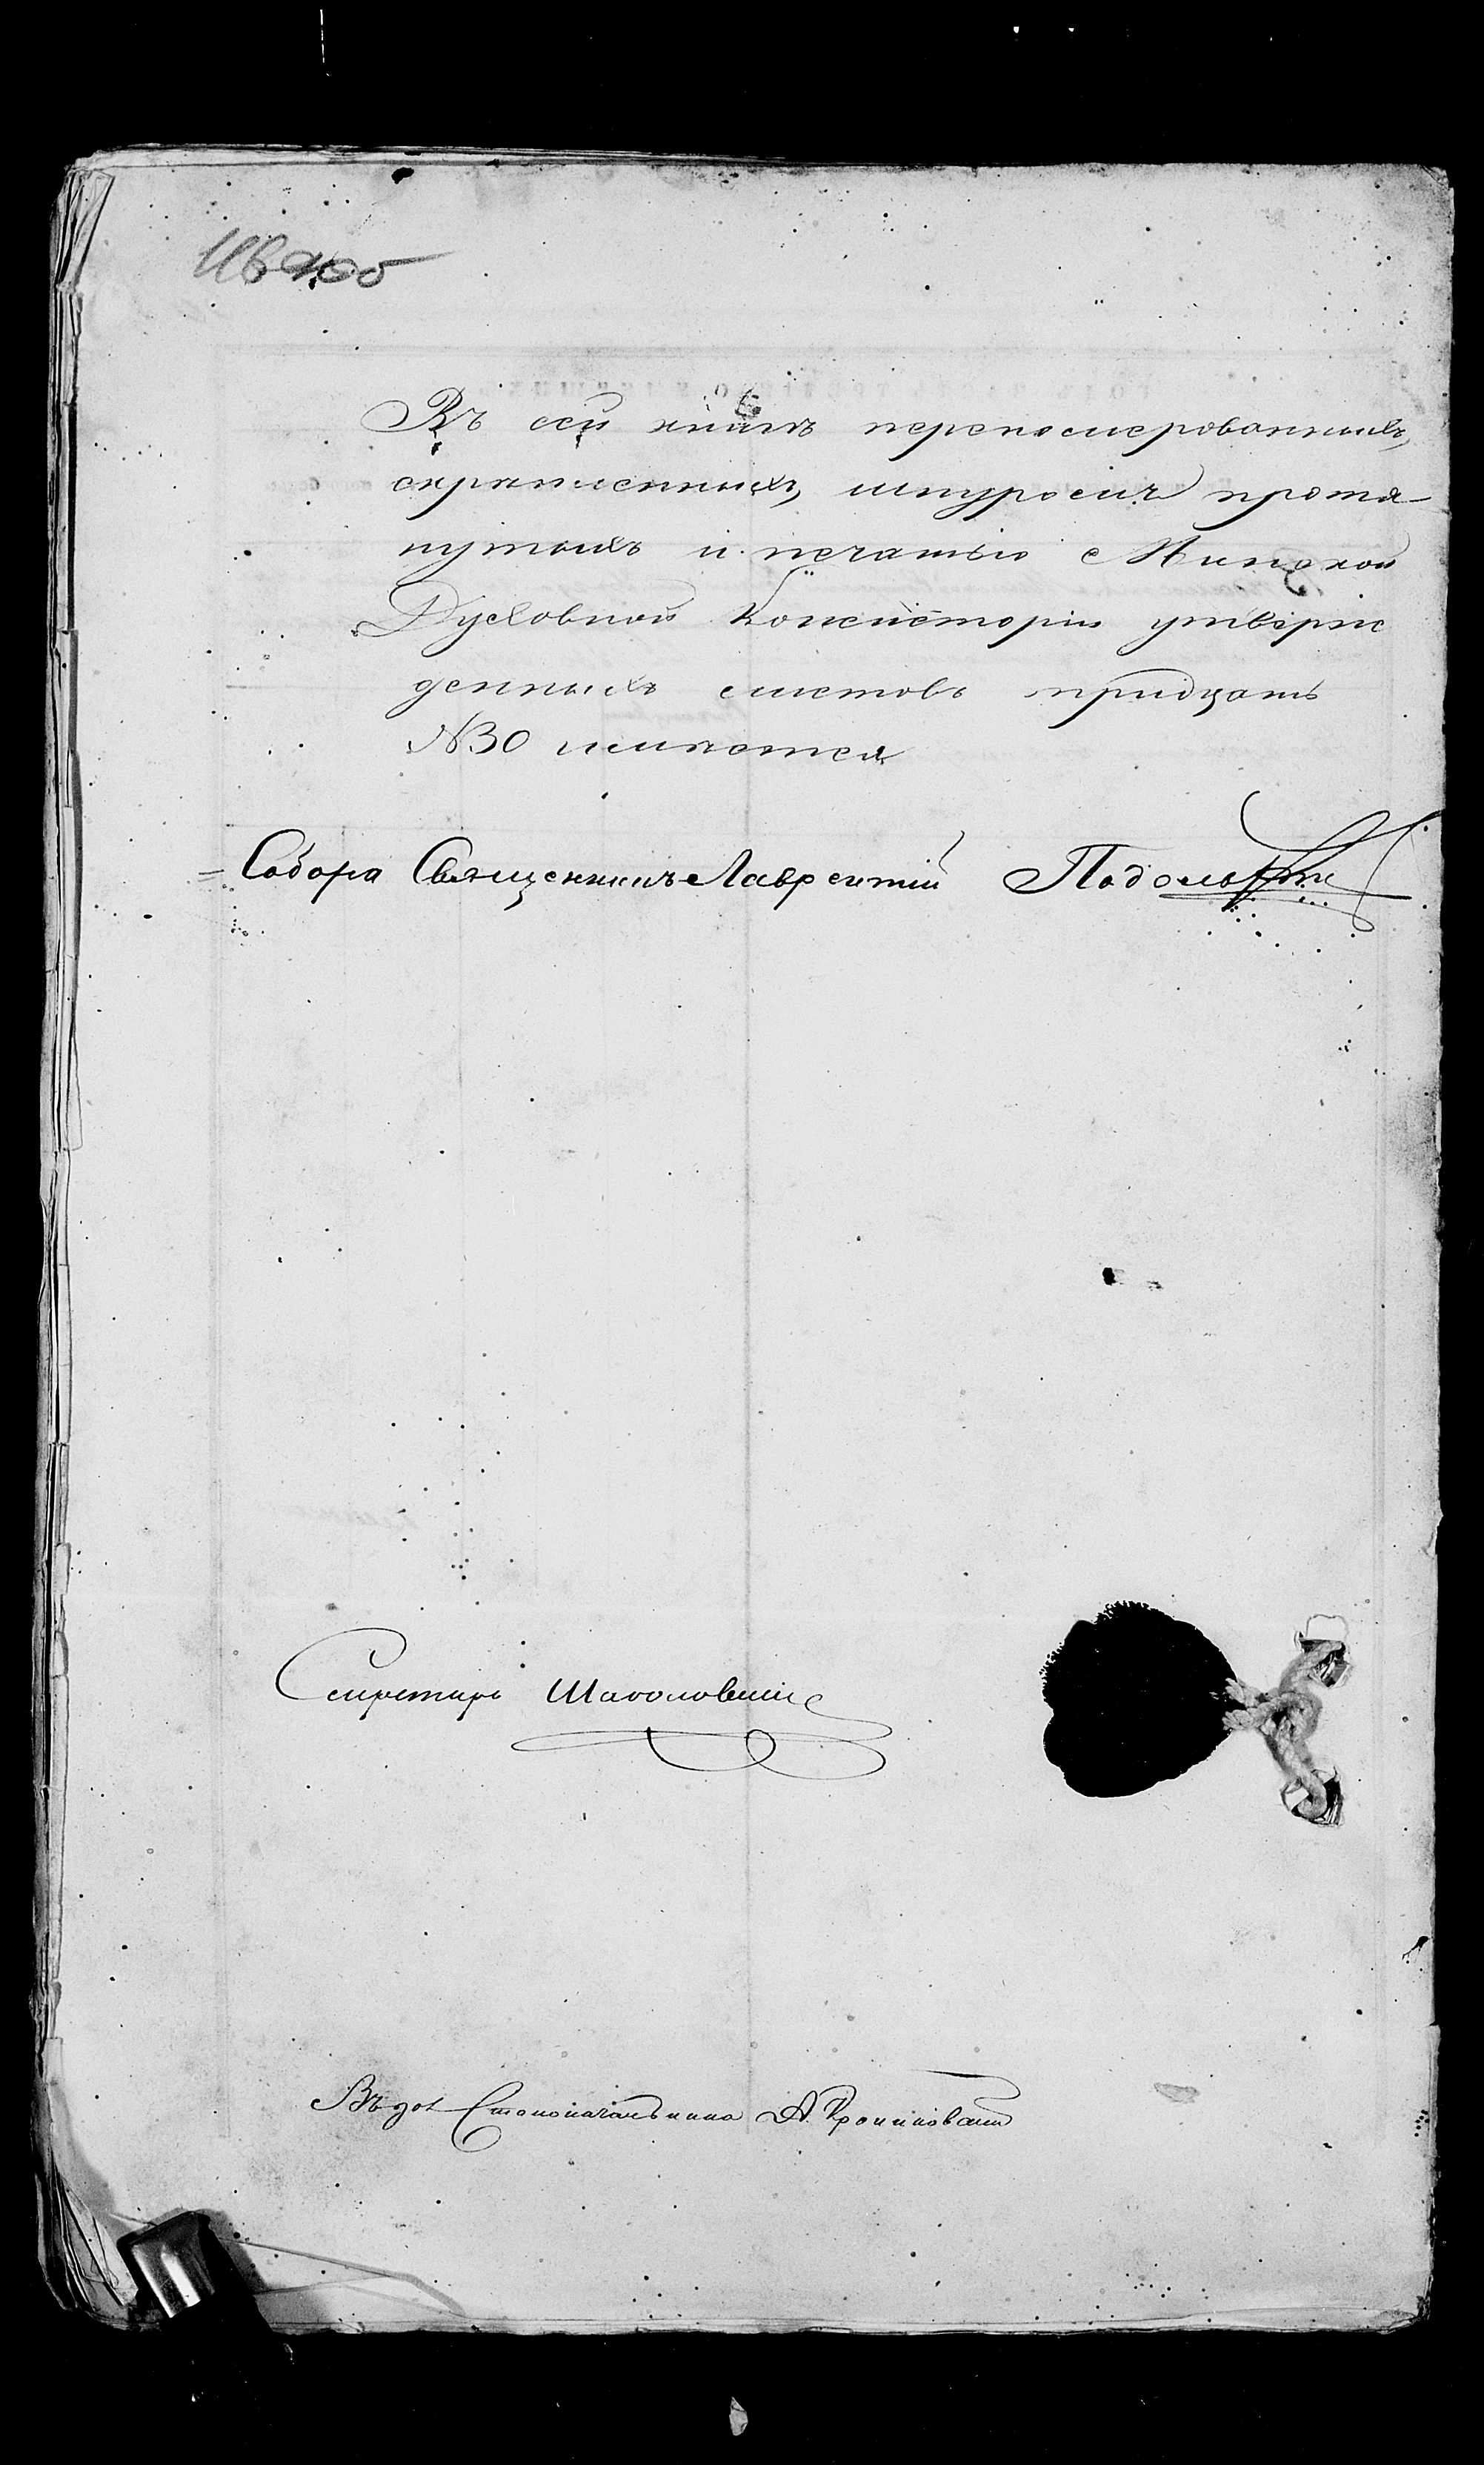 Въ сей книгѣ переномерованныхъ,
скрѣпленныхъ, шнуромъ протя-
нутыхъ и печатью Минской
Духовной Консисторіи утверж
денныхъ листовъ тридцать
N30 имѣется
Собора Священникъ Лаврентій Подольскій
Секретарь
Въ дол Столоначальника А.